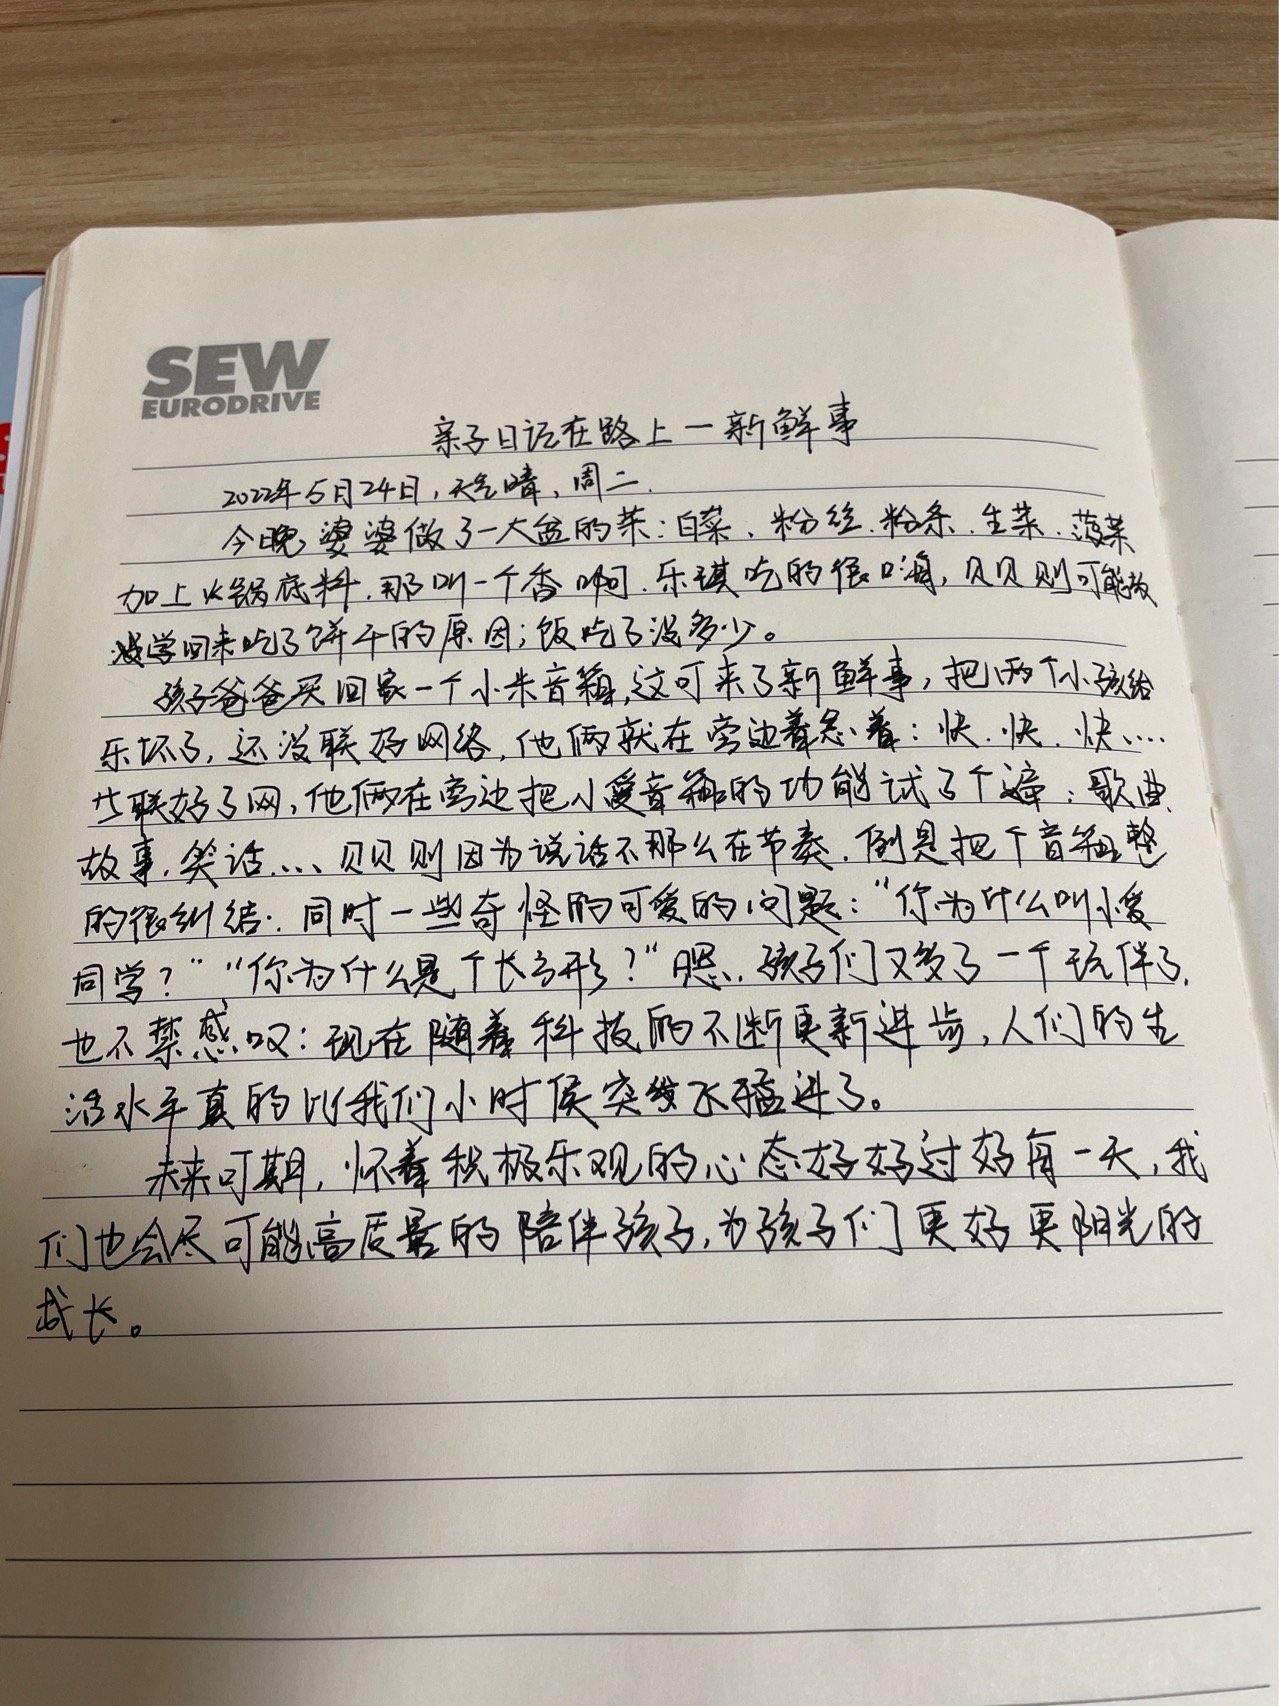 SEW
EURODRIVE
亲子日记在路上一新鲜事
2022年5月24日,天气晴,周二.
今晚婆婆做了一大盆的菜:白菜、粉丝.粉条.生菜.菠菜
加上火锅底料,那叫一个香啊.乐琪吃的很嗨,贝贝则可能放
学回来吃了饼干的原因;饭吃了没多少。
孩子爸爸买回家一个小米音箱,这可来了新鲜事,把两个小孩给
乐坏了,还没联好网络,他俩就在旁边着急着:快.快.快....
联好了网,他俩在旁边把小爱音箱的功能试了个遍:歌曲.
故事.笑话.... 贝贝则因为说话不那么在节奏.倒是把个音箱整
的很纠结.同时一些奇怪的可爱的问题:“你为什么叫小爱
同学?”“你为什么是个长方形?”嗯.孩子们又多了一个玩伴了.
也不禁感叹:现在随着科技的不断更新进步,人们的生
活水平真的比我们小时侯突发飞猛进了。
未来可期,怀着积极乐观的心态好好过好每一天,我
们也会尽可能高质量的陪伴孩子,为孩子们更好更阳光的
成长。